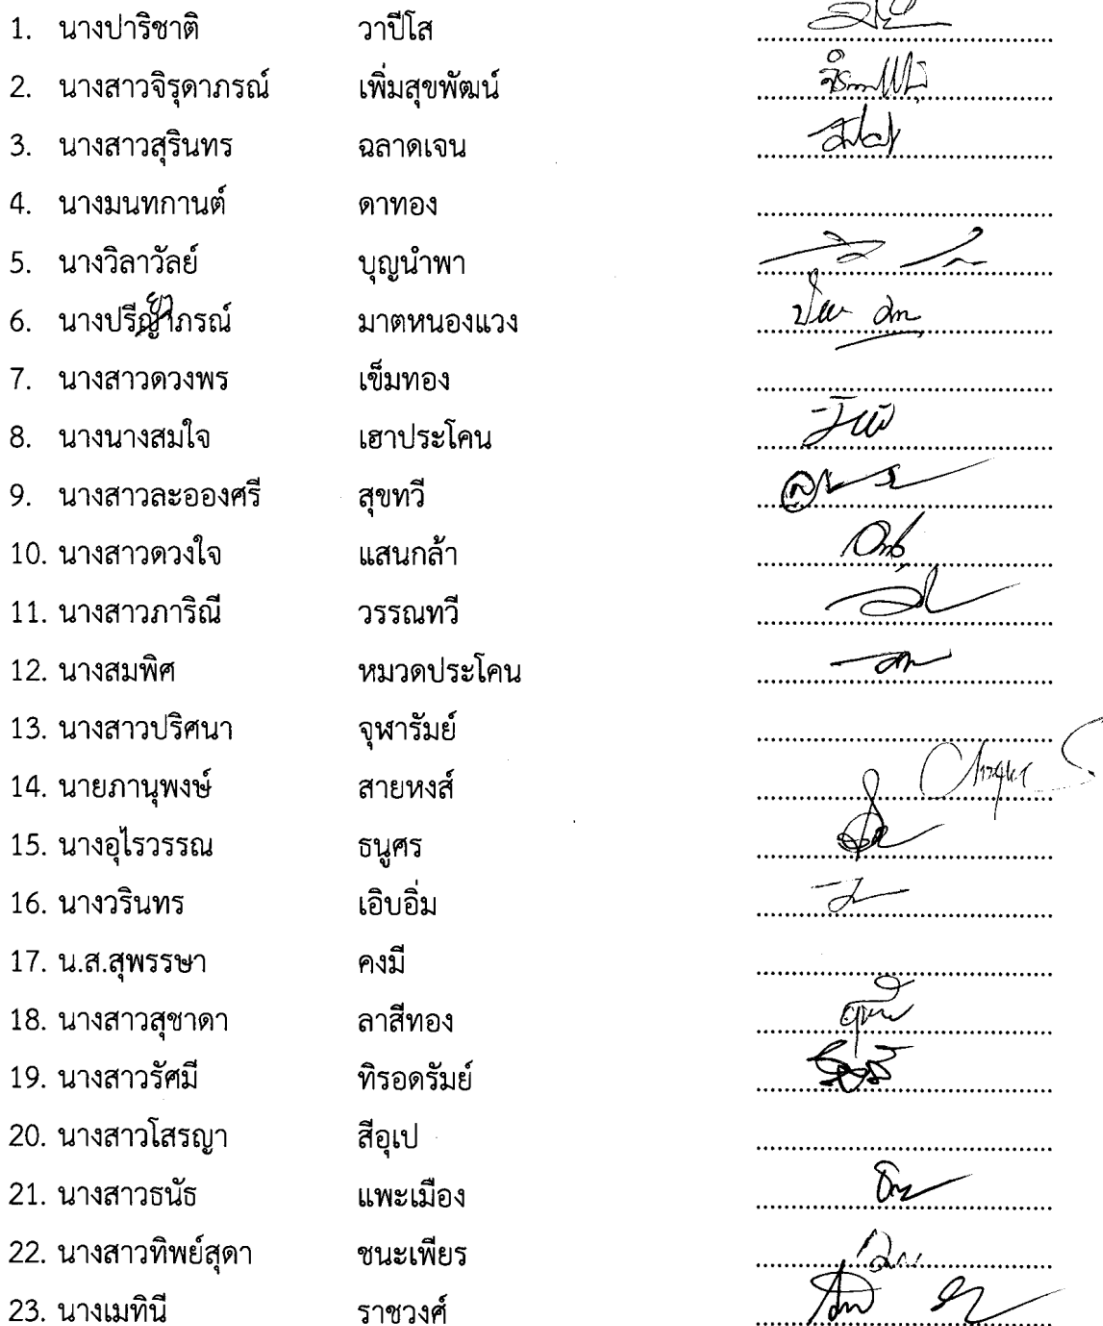 1. นางปาริชาติ วาปีโส
2. นางสาวจิรุดาภรณ์ เพิ่มสุขพัฒน์
3. นางสาวสุรินทร ฉลาดเจน
4. นางมนทกานต์ ดาทอง
5. นางวิลาวัลย์ บุญนำพา
6. นางปรียาภรณ์ มาตหนองแวง
7. นางสาวดวงพร เข็มทอง
8. นางนางสมใจ เฮาประโคน
9. นางสาวละอองศรี สุขทวี
10. นางสาวดวงใจ แสนกล้า
11. นางสาวภาริณี วรรณทวี
12. นางสมพิศ หมวดประโคน
13. นางสาวปริศนา จุฬารัมย์
14. นายภานุพงษ์ สายหงส์
15. นางอุไรวรรณ ธนูศร
16. นางวรินทร เอิบอิ่ม
17. น.ส.สุพรรษา คงมี
18. นางสาวสุชาดา ลาสีทอง
19. นางสาวรัศมี ทิรอดรัมย์
20. นางสาวโสรญา สีอุเป
21. นางสาวธนัธ แพะเมือง
22. นางสาวทิพย์สุดา ชนะเพียร
23. นางเมทินี ราชวงศ์